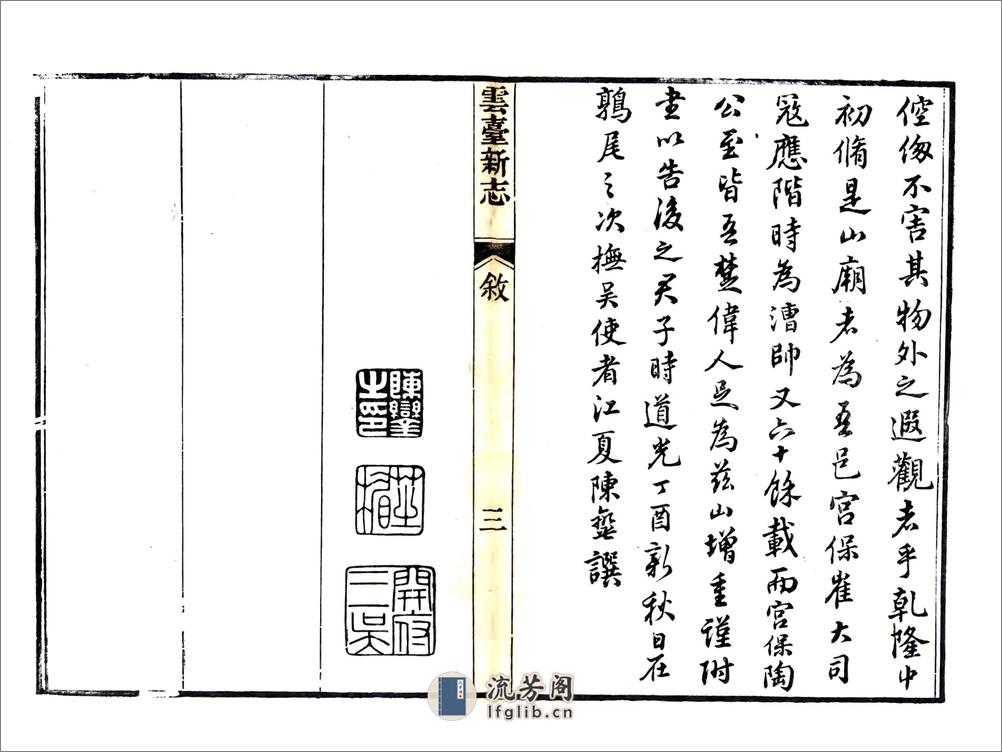 倥偬不害其物外之遐觀者乎乾隆中
初脩是山廟者為吾邑宮保崔大司
寇應階時為漕帥又六十餘載而宮保陶
公至皆吾楚偉人足為茲山增重謹附
書以告後之君子時道光丁酉新秋日在
鶉尾之次撫吳使者江夏陳鑾譔
雲臺新志
敘
三
陳鑾之印
芝楣
開府三吳
流芳阁
lfglib.cn